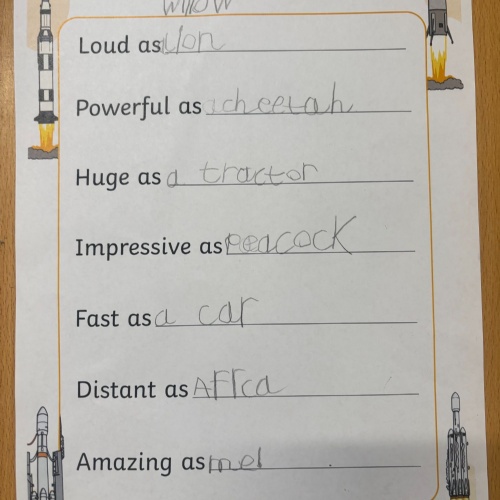 Willow
Loud as lion
Powerful as a cheetah
Huge as a tractor
Impressive as peacock
Fast as a car
Distant as Africa
Amazing as me!